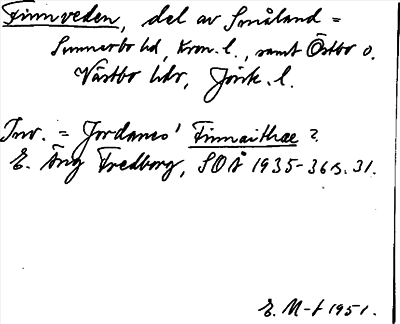 Finnveden, del av Småland =
Sunnerbo hd, Kron. l., samt Östbo o.
Västbo hdr, Jönk. l.
Inv. = Jordanes' Finnaithae ?
E. Äng Fredborg, SOÅ 1935-36 s. 31.
E. M-t 1951.